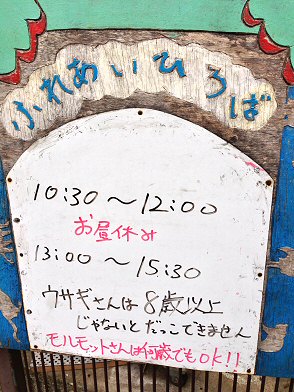 ふれあいひろば
10:30～12:00
お昼休み
13:00～15:30
ウサギさんは8歳以上
じゃないとだっこできません
モルモットさんは何歳でもOK!!